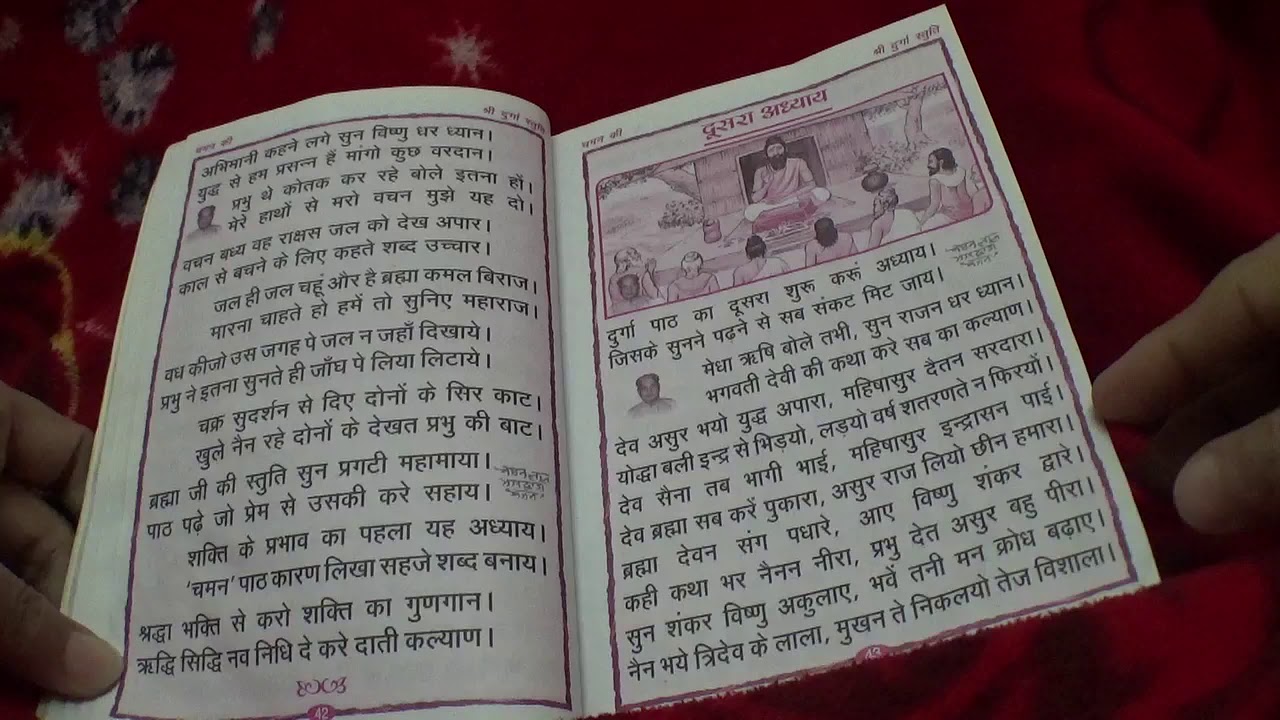 चमन की
श्री दुर्गा स्तुति
अभिमानी कहने लगे सुन विष्णु धर ध्यान।
युद्ध से हम प्रसन्न हैं मांगो कुछ वरदान।
प्रभु थे कोतक कर रहे बोले इतना हों।
मेरे हाथों से मरो वचन मुझे यह दो।
वचन बध्य वह राक्षस जल को देख अपार।
काल से बचने के लिए कहते शब्द उच्चार।
जल ही जल चहूं और है ब्रह्मा कमल बिराज।
मारना चाहते हो हमें तो सुनिए महाराज।
वध कीजो उस जगह पे जल न जहाँ दिखाये।
प्रभु ने इतना सुनते ही जाँघ पे लिया लिटाये।
चक्र सुदर्शन से दिए दोनों के सिर काट।
खुले नैन रहे दोनों के देखत प्रभु की बाट।
ब्रह्मा जी की स्तुति सुन प्रगटी महामाया।
पाठ पढ़े जो प्रेम से उसकी करे सहाय।
शक्ति के प्रभाव का पहला यह अध्याय।
'चमन' पाठ कारण लिखा सहजे शब्द बनाय।
श्रद्धा भक्ति से करो शक्ति का गुणगान।
ऋद्धि सिद्धि नव निधि दे करे दाती कल्याण।
42
चमन की
श्री दुर्गा स्तुति
दूसरा अध्याय
दुर्गा पाठ का दूसरा शुरू करूं अध्याय।
जिसके सुनने पढ़ने से सब संकट मिट जाय।
मेधा ऋषि बोले तभी, सुन राजन धर ध्यान।
भगवती देवी की कथा करे सब का कल्याण।
देव असुर भयो युद्ध अपारा, महिषासुर दैतन सरदारा।
योद्धा बली इन्द्र से भिड़यो, लड़यो वर्ष शतरणते न फिरयों।
देव सेना तब भागी भाई, महिषासुर इन्द्रासन पाई।
देव ब्रह्मा सब करें पुकारा, असुर राज लियो छीन हमारा।
ब्रह्मा देवन संग पधारे, आए विष्णु शंकर द्वारे।
कही कथा भर नैनन नीरा, प्रभु देत असुर बहु पीरा।
सुन शंकर विष्णु अकुलाए, भवें तनी मन क्रोध बढ़ाए।
नैन भये त्रिदेव के लाला, मुखन ते निकलयो तेज विशाला।
43